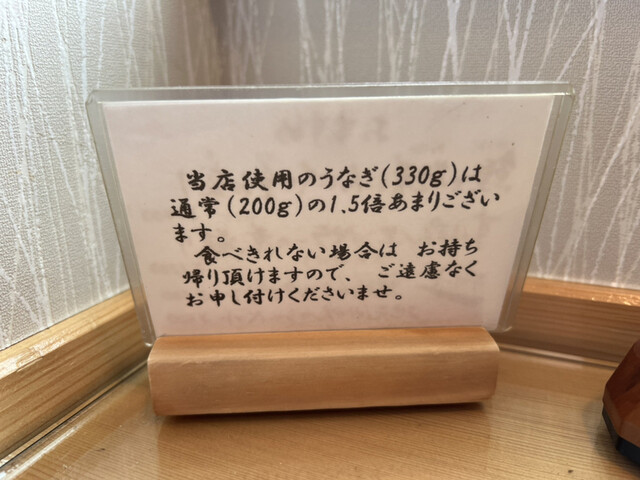 当店使用のうなぎ(330g)は
通常(200g)の1.5倍あまりござい
ます。
食べきれない場合は お持ち
帰り頂けますので、 ご遠慮なく
お申し付けくださいませ。